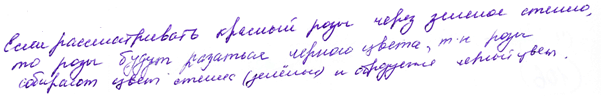 Если рассматривать красный розы через зеленое стекло,
то розы будут казаться черного цвета, т.к розы
собирают цвет стекла (зелёный) и образуется чёрный цвет.